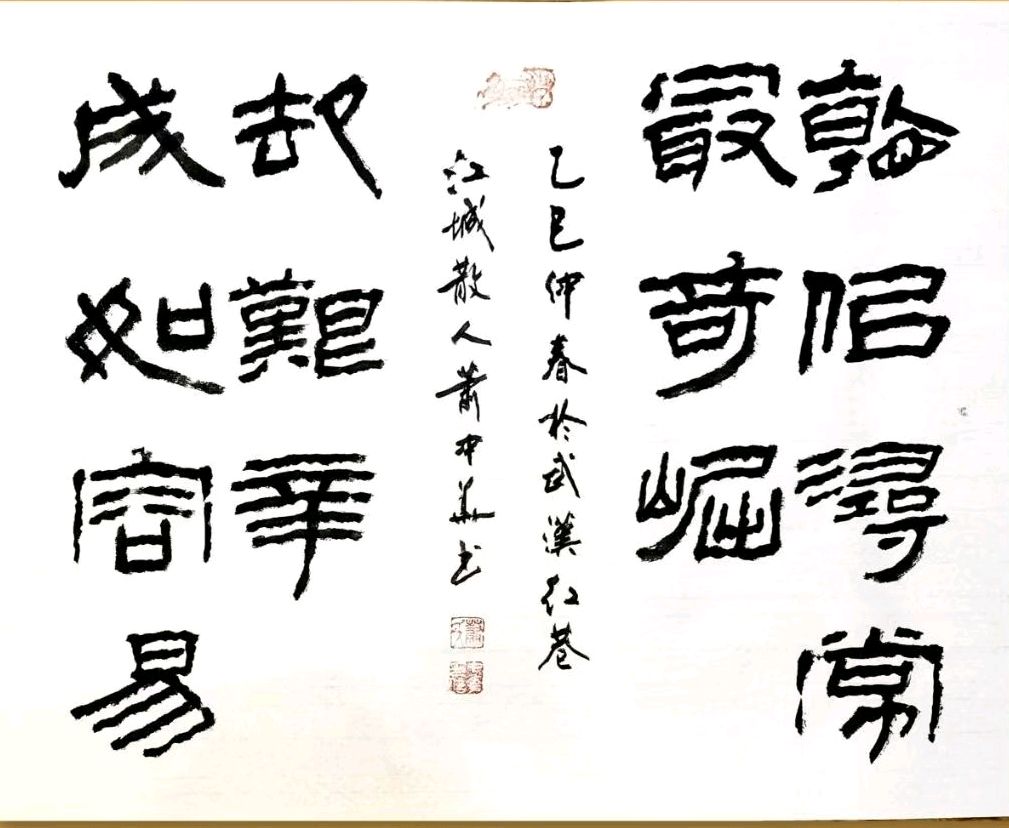 看佀尋常
最奇崛
成如容易
却艱辛
乙巳仲春於武漢红巷
江城散人蕭中華书